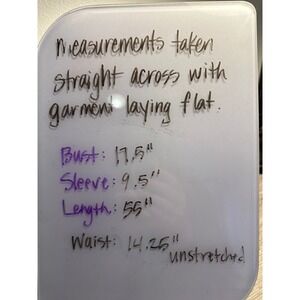 measurements taken
straight across with
garment laying flat.
Bust: 17.5"
Sleeve: 9.5"
Length: 55"
Waist: 14.25"
unstretched